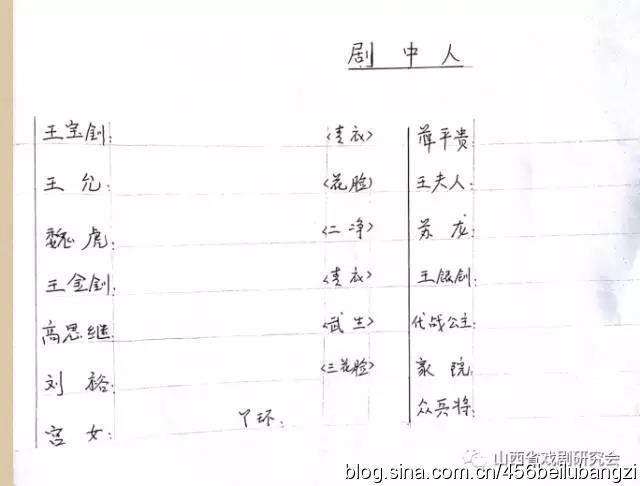 剧中人
王宝钏: <青衣> 薛平贵:
王允: <花脸> 王夫人:
魏虎: <二净> 苏龙:
王金钏: <青衣> 王银钏:
高思继: <武生> 代战公主:
刘裕: <三花脸> 家院:
宫女: 丫环: 众兵将:
山西省戏剧研究会
blog.sina.com.cn/456beilubangzi